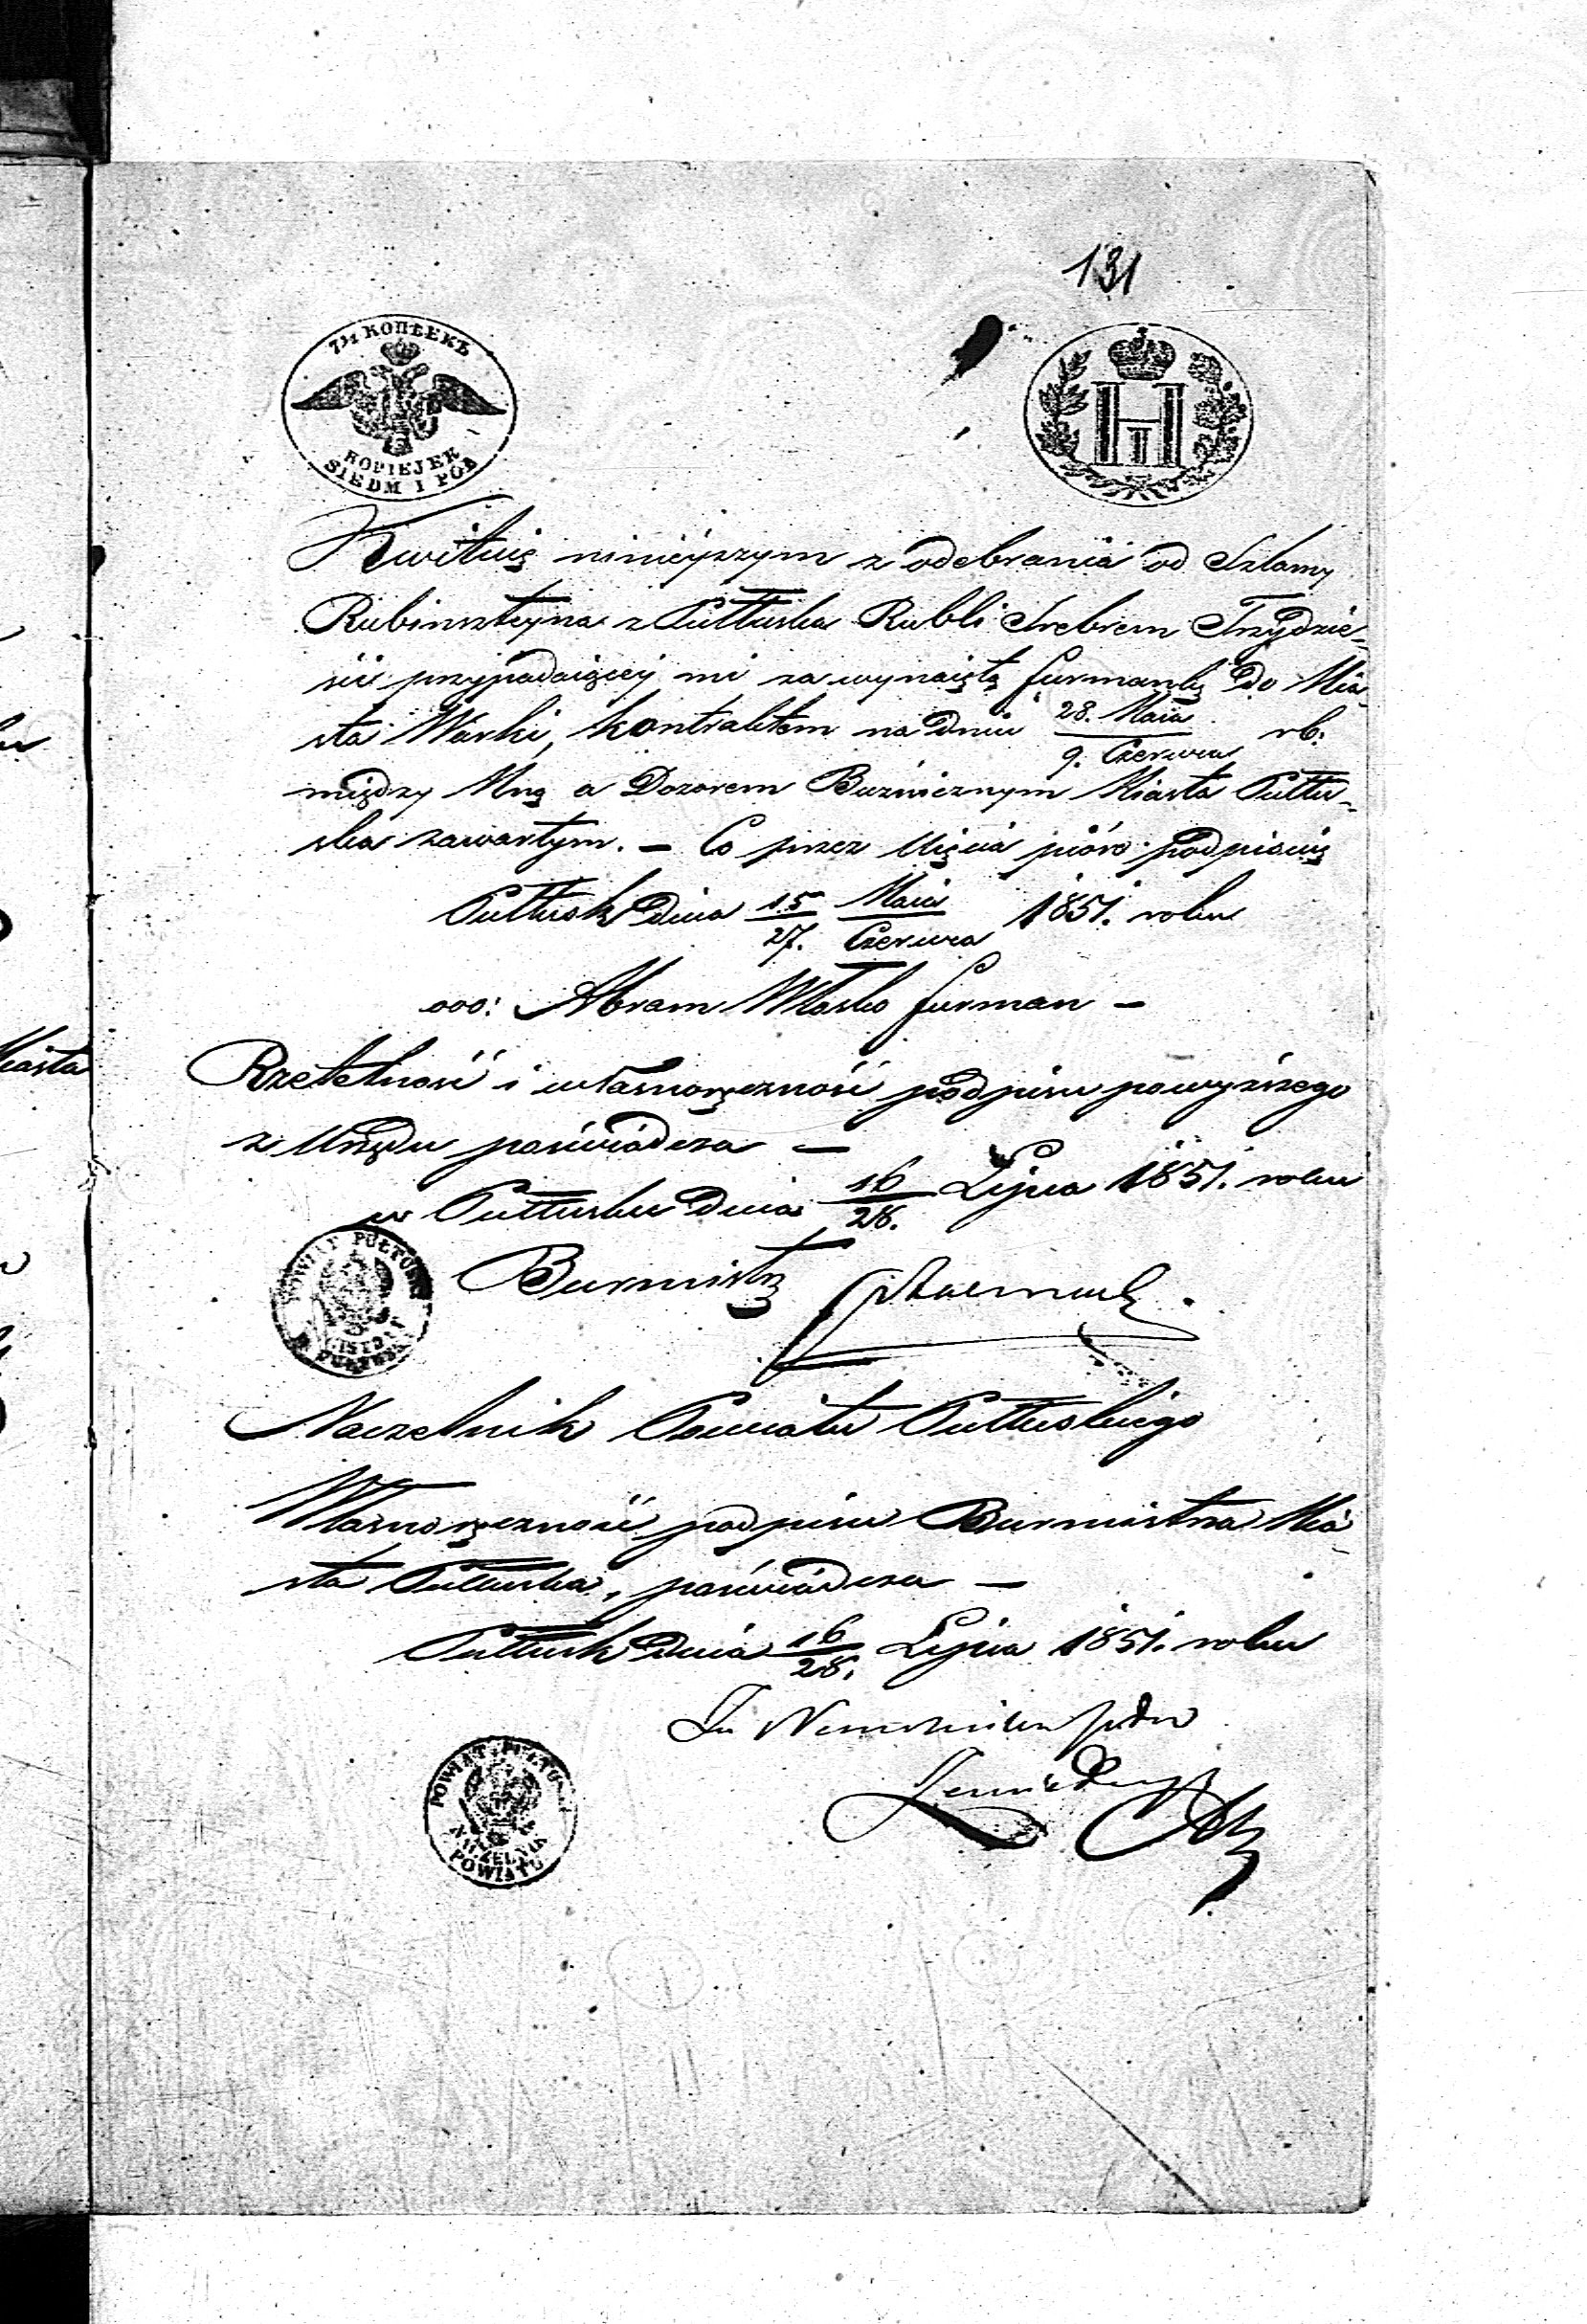 131
7½ КОПѢЕКЪ
KOPIEJEK
SIEDM I PÓŁ
Н I
Kwituię ninieyszym z odebrania od Szlamy
Rubinszteyna z Pułtuska Rubli Srebrem Trzydzie-
ści przypadaiącey mi za wynaiętą furmankę do Mia-
sta Warki, kontraktem na dniu 28. Maia / 9. Czerwca rb.
między Mną a Dozorem Bużnicznym Miasta Pułtu-
ska zawartym. — Co przez ujęcie pióra podpisuię
Pułtusk dnia 15/27. Maia/Czerwca 1851. roku
ooo: Abram Wloska furman —
Rzetelność i własnoręczność podpisu powyższego
z Urzędu poświadcza —
w Pułtusku dnia 16/28. Lipca 1851. roku
POWIAT PUŁTUSKI
Burmistrz
Naczelnik Powiatu Pułtuskiego
Własnoręczność podpisu Burmistrza Mia-
sta Pułtuska, poświadcza —
Pułtusk dnia 16/28. Lipca 1851. roku
POWIAT PUŁTUSKI
NACZELNIK
POWIATU